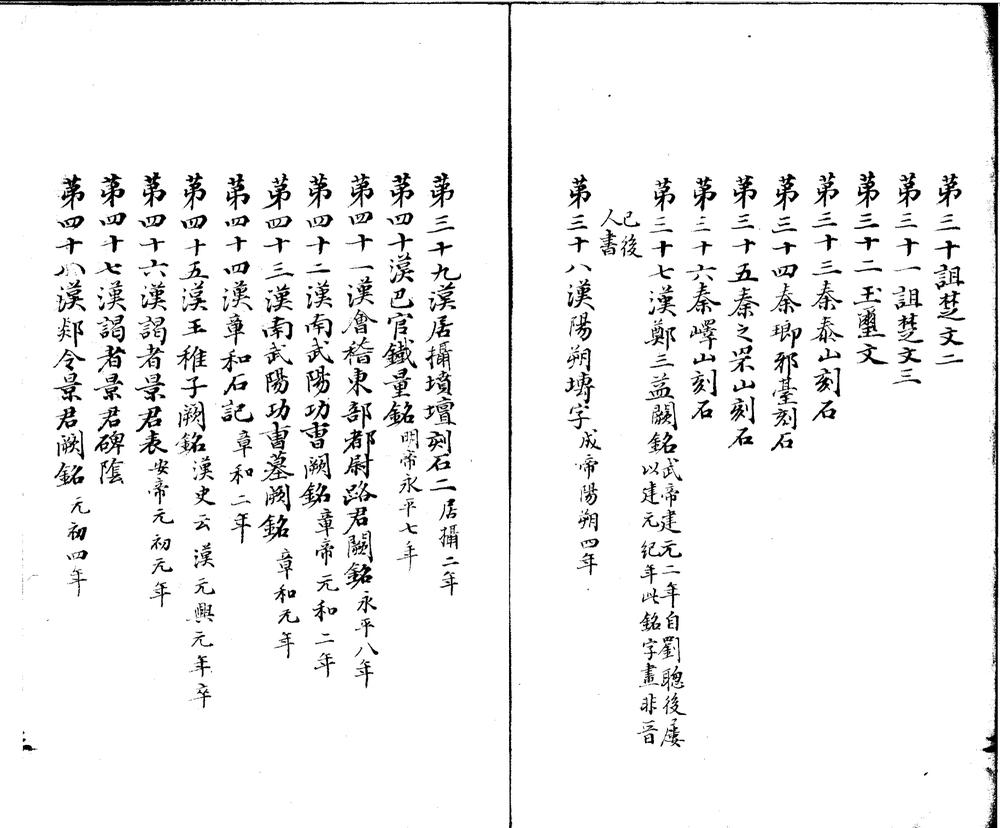 第三十詛楚文二
第三十一詛楚文三
第三十二玉璽文
第三十三秦泰山刻石
第三十四秦瑯邪臺刻石
第三十五秦之罘山刻石
第三十六秦嶧山刻石
第三十七漢鄭三益闕銘武帝建元二年自劉聰後屡以建元紀年此銘字畫非晉
已後人書
第三十八漢陽朔塼字成帝陽朔四年
第三十九漢居攝墳壇刻石二居攝二年
第四十漢巴官鐵量銘明帝永平七年
第四十一漢會稽東部都尉路君闕銘永平八年
第四十二漢南武陽功曹闕銘章帝元和二年
第四十三漢南武陽功曹墓闕銘章和元年
第四十四漢章和石記章和二年
第四十五漢王稚子闕銘漢史云漢元興元年卒
第四十六漢謁者景君表安帝元初元年
第四十七漢謁者景君碑陰
第四十八漢郯令景君闕銘元初四年